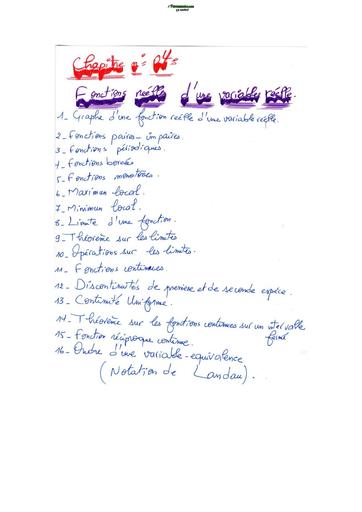 Chapitre n° 04 :
Fonctions réelle d'une variable réelle.
1_ Graphe d'une fonction réelle d'une variable réelle.
2_ Fonctions paires_ impaires.
3_ Fonctions périodiques.
4_ Fonctions bornées
5_ Fonctions monotones.
6_ Maximum local.
7_ Minimum local.
8_ Limite d'une fonction.
9_ Théorème sur les limites
10_ Opérations sur les limites.
11_ Fonctions continues.
12_ Discontinuités de première et de seconde espèce.
13_ Continuité Uniforme.
14_ Théorème sur les fonctions continues sur un intervalle fermé
15_ Fonction réciproque continue.
16_ Ordre d'une variable-equivalence
(Notation de Landau).